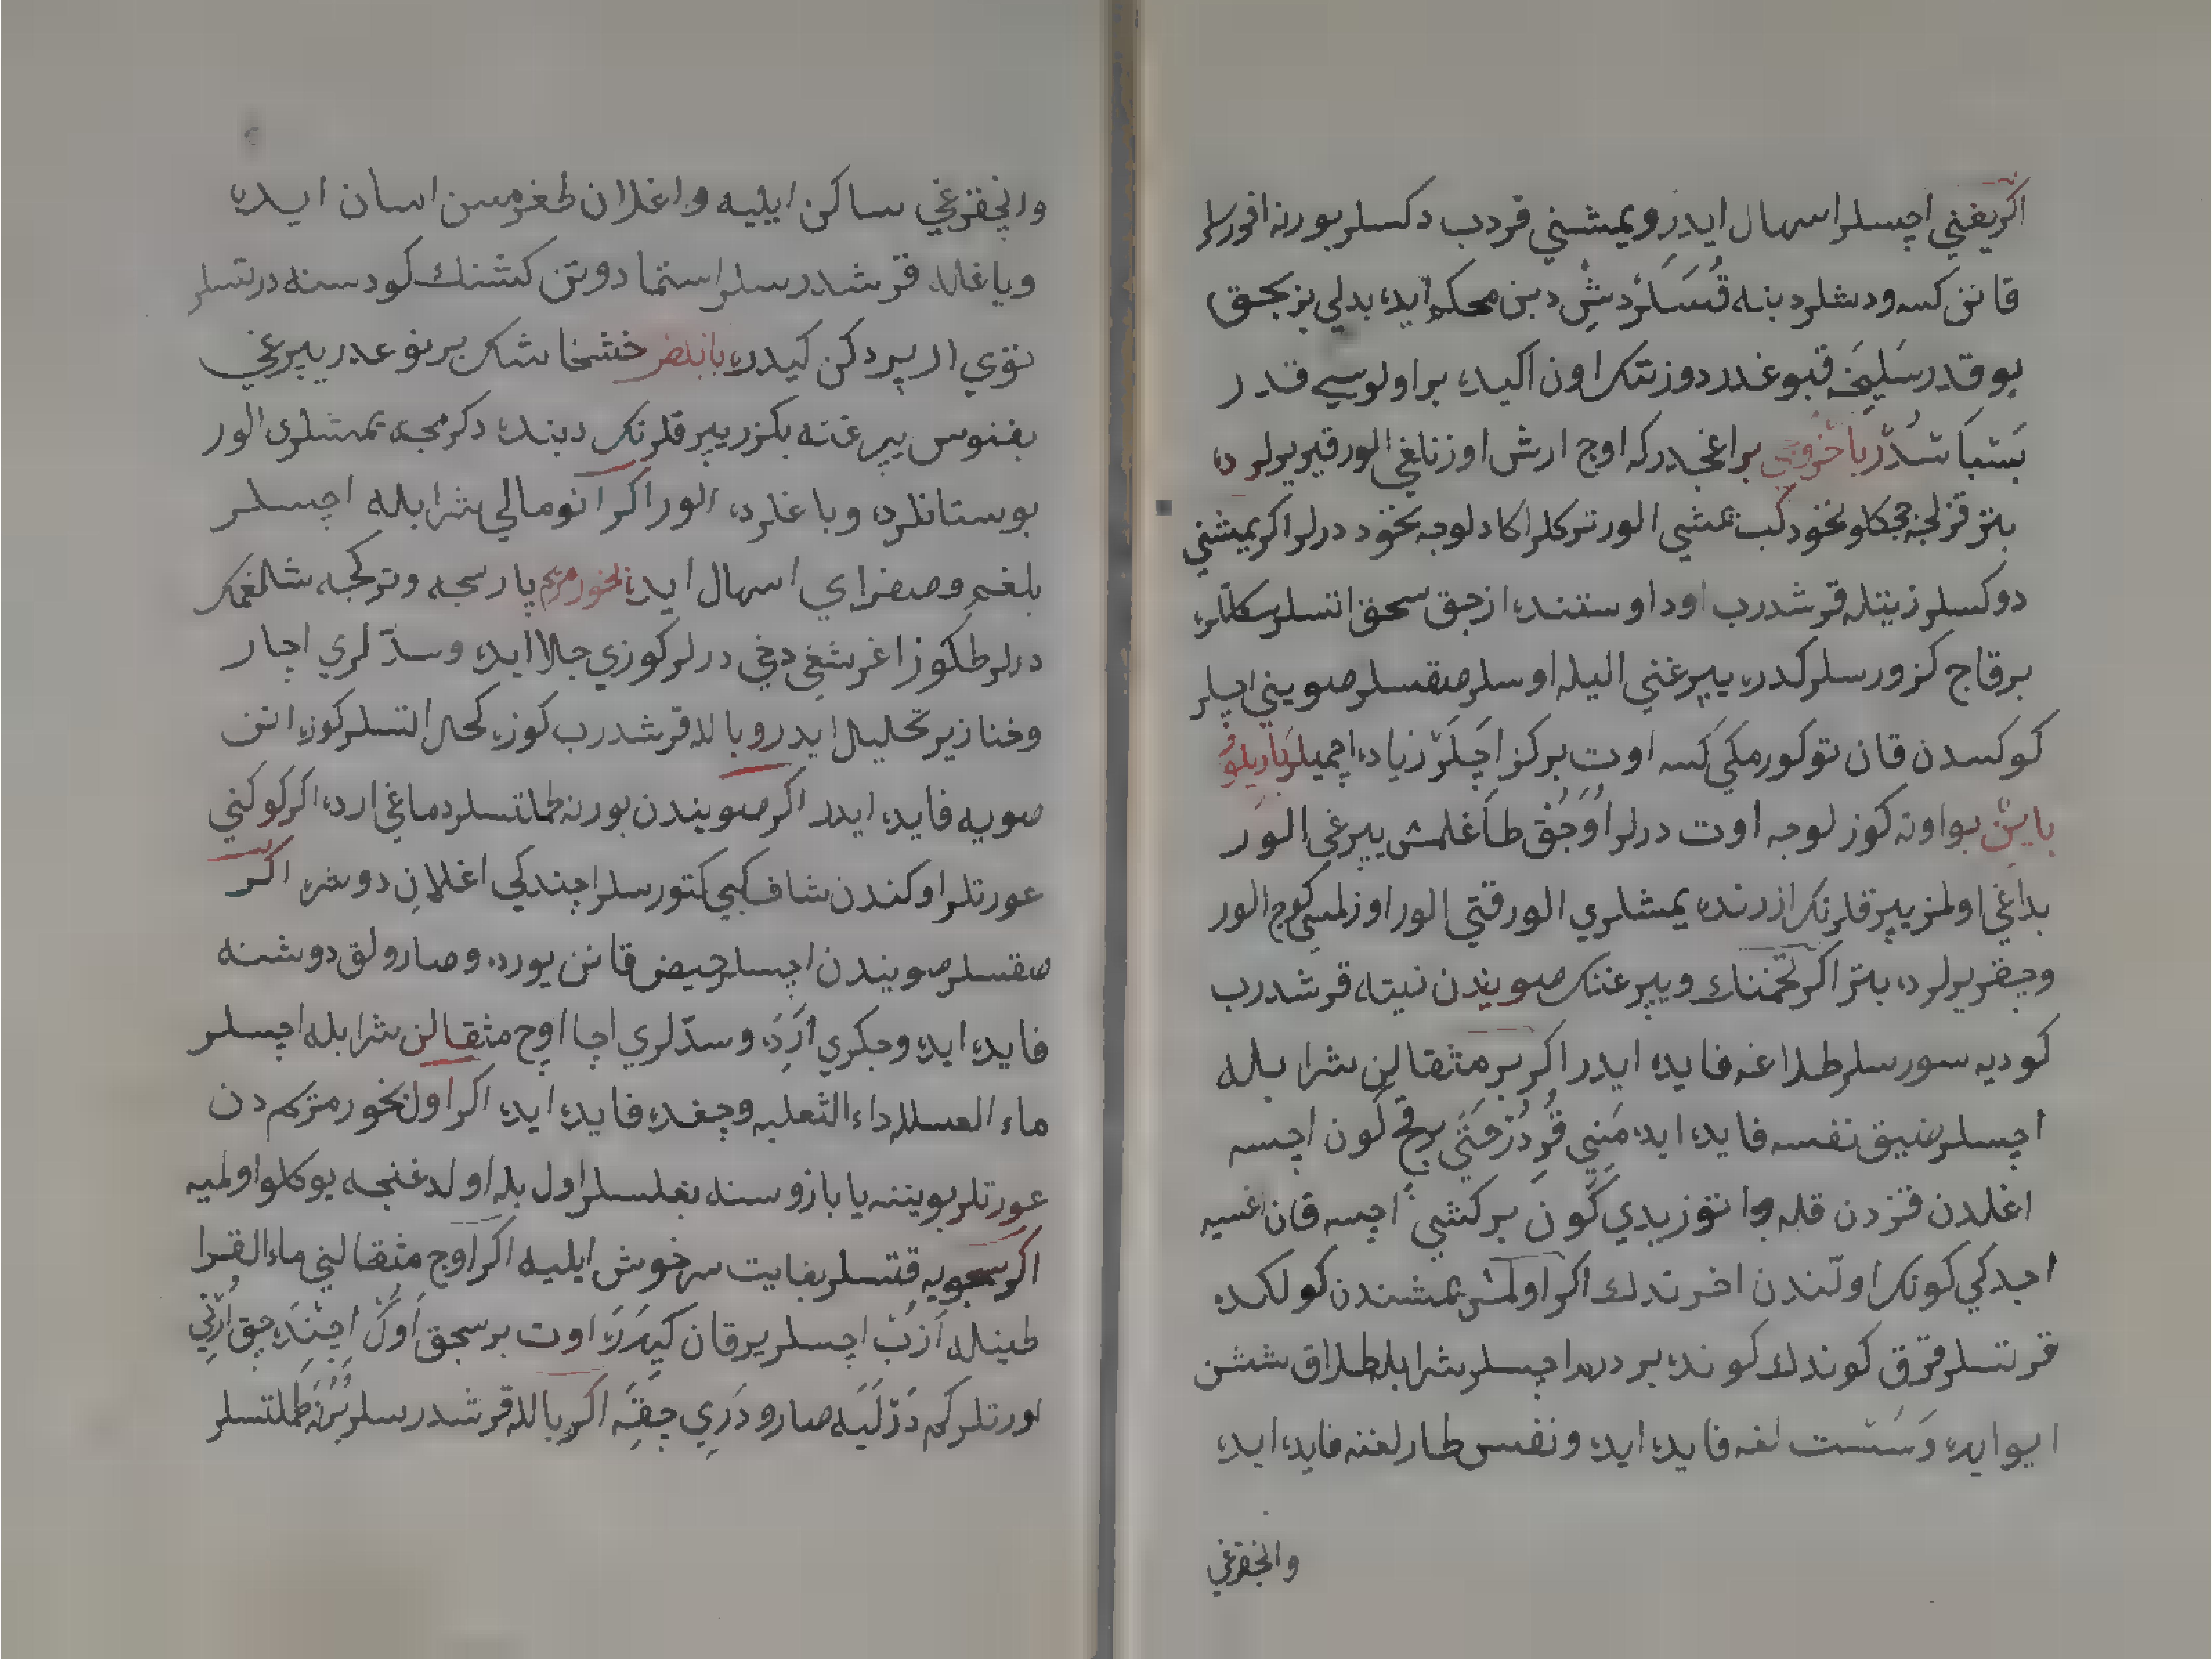 اكر يغني اچسلر اسهال ايدر ويمشني قردب دكسلر بورنه افورسلر
قانن كسه ودشلر دبنه قُسَسَلَرْ دِشْ دبن محكم ايده بدلي بزبجق
بوقدر سَلِيخَه قبوغدر دوزنتك اون اكيده بر اولوسي قدر
بَسْتبَاسَتدُدّر بَاخُروبي بر اغجدركه اوچ ارش اوزناغي الور قير يرلرده
بتر قزلجه چچكلو نخود كب يمشي الور تركلر اكا دلوجه نخود درلر اكر يمشني
دوكسلر زيتله قرشدرب اود اوستنده ازجق سحق اتسلر سكللره
برقاچ كز ورسلر كدره يپرغني اليله اوسلر صقسلر صويني اچلر
كوكسدن قان توكورمكي كسه اوت بركز اچَلَرْ زياده اچميلر باربلوُ
باين بو اوته كوزلوجه اوت درلر اوُجُق طاغلمش يپرغي الور
بداغي اولمز يپرقلرنك ازرنده يمشلري الور قتي الور اوزلمسي كوج الور
وچقر يرلرده بتر اكر تخمنك ويپرغنك صويندن زيتله قرشدرب
كوديه سورسلر طلاغه فايده ايدر اكر بر مثقالن شرا بله
اچسلر ضيق نفسه فايده ايده مَنِي قُرِدُرْ حَتَّي برقچ كون اچسه
اغلدن قزدن قله وا توز يدي كُون بر كشي اچسه قان اغسيه
اچدكي كونك اولندن اخرندك اكر اولمش يمشندن كولكده
قرتسلر قرق كوندك كونده بر درهم اچسلر شرا بله طلاق ششن
ايو ايده وَسُسْت لغه فايده ايده ونفس طارلغنه فايده ايده
وانچقرغي
وانچقرغي ساكن ايليه واغلان طغرمسن اسان ايده
وياغله قرشدرسلر استما دوتن كشنك كودسنه درتسلر
تؤي ار پردكن كيدره بانبض خشخاشك بر نوعدر يپرغي
بفنوس يپرغنه بكزر يپرقلرنك دبنده دكرمجه يمشلري الور
بوستانلرده وباغلرده الور اكر انو مالي شرا بله اچسلر
بلغم وصفراي اسهال ايده بخور مريم پارسجه وتركجه شالغمك
درلر طكوز اغرشغي دخي درلر كوزي جلا ايده وسدّ لري اچار
وخنازير تحليل ايدر وبا لله قرشدرب كوزه كحل اتسلر كوزه اتن
صويه فايده ايدر اكر صويندن بورنه طملتسلر دماغي ارده اكر كوكني
عورتلر اوكندن شاف كبي كتورسلر اچندكي اغلان دوشره اكر
صقسلر صويندن اچسلر حيض قانن يورده وصارولق دوشنه
فايده ايده وجكري اَرِدَه وسدّ لري اچا اوچ مثقالن شرا بله اچسلر
ماء العسلله داء الثعلبه وچغده فايده ايده اكر اول بخور مريم دن
عورتلر بويننه يا بازوسنه بغلسلر اول بله اولدغنجه يوكلو اولميه
اكر سجويه قتسلر بغايت سرخوش ايليه اكر اوچ مثقالني ماء القرا
طينله اَزِبْ اچسلر يرقان كيدره اوت بر سجق اَوُكْ اِچِنْدَه چق اُرْتِي
اورتلر كم دَرْلَيَه صارو دَرِي چِقَه اكر بالله قرشدرسلر بُرُنَه طملتسلر